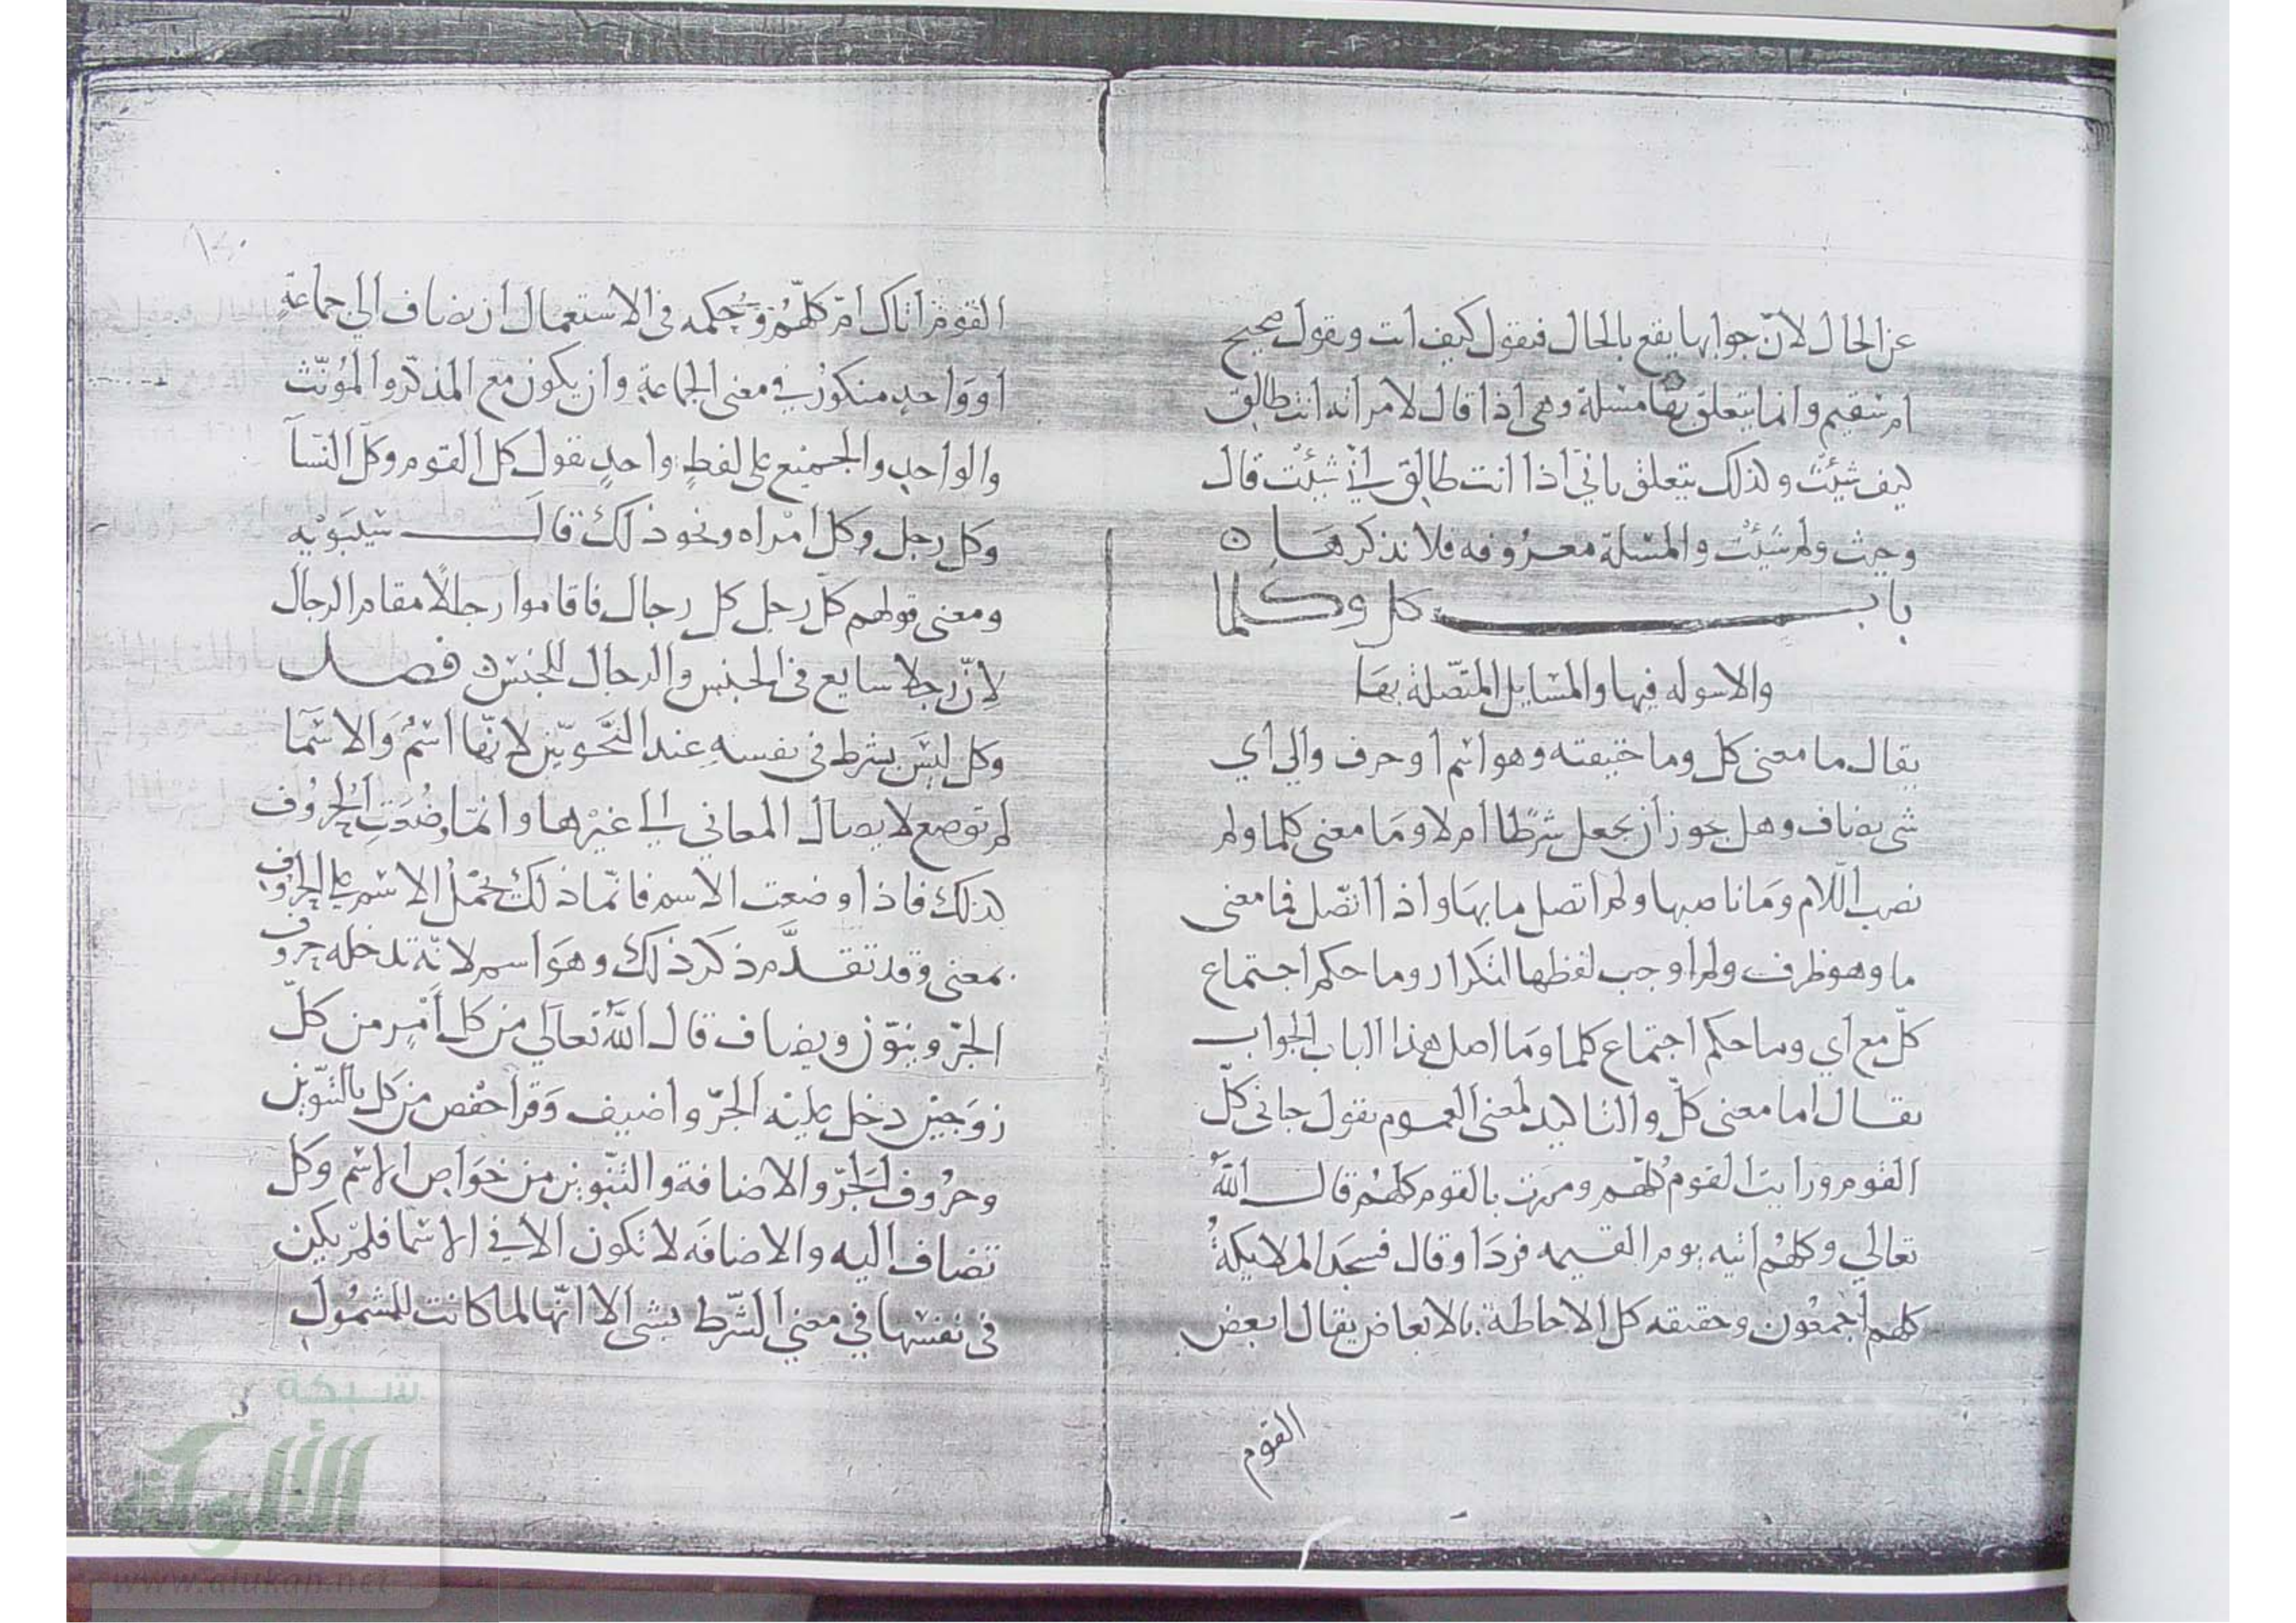 عن الحال لان جوابها يقع بالحال فيقول كيف انت ويقول صحيح
ام سقيم وانما يتعلق بها مسئلة وهي اذا قال لامراته انت طالق
كيف شئت وكذلك يتعلق باني اذا انت طالق اني شئت قال
وحيث ولم شئت والمسئلة معروفه فلا نذكرها ه
باب كل وكلما
والاسوله فيها والمسايل المتصلة بها
يقال ما معنى كل وما حقيقته وهو اسم او حرف والى اي
شى يضاف وهل يجوز ان يجعل شرطا ام لا وما معنى كلما ولم
نصب اللام وما ناصبها ولم اتصل ما بها واذا اتصل فما معنى
ما وهو ظرف ولم اوجب لفظها التكرار وما حكم اجتماع
كل مع اي وما حكم اجتماع كلما وما اصل هذا الباب الجواب
يقال اما معنى كل والتاكيد لمعنى العموم يقول جانى كل
القوم ورايت القوم كلهم ومررت بالقوم كلهم قال الله
تعالى وكلهم اتيه يوم القيمه فردا وقال فسجد الملايكة
كلهم اجمعون وحقيقه كل الاحاطة بالابعاض يقال ابعض
القوم
القوم اتاك ام كلهم وحكمه فى الاستعمال ان يضاف الى جماعة
او واحد منكور في معنى الجماعة وان يكون مع المذكر والمؤنث
والواحد والجميع على لفظ واحد يقول كل القوم وكل النسآ
وكل رجل وكل امراه ونحو ذلك قال سيبويه
ومعنى قولهم كل رجل كل رجال فاقاموا رجلا مقام الرجال
لان رجلا سايع فى الجنس والرجال للجنس ه فصل
وكل ليس بشرط فى نفسه عند النحويين لانها اسم والاسما
لم توضع لايصال المعاني الى غيرها وانما وضعت الحروف
لذلك فاذا وضعت الاسم فانما ذلك بحمل الاسم على الحروف
بمعنى وقد تقدم ذكر ذلك وهو اسم لانه تدخله حروف
الجر وينون ويضاف قال الله تعالى من كل امر من كل
زوجين دخل عليه الجر واضيف وقرا حفص من كل بالتنوين
وحروف الجر والاضافة والتنوين من خواص الاسم وكل
تضاف اليه والاضافه لا تكون الا في الاسما فلم يكن
فى نفسها في معنى الشرط بشى الا انها لما كانت للشمول
شبكة
الألوكة
www.alukah.net